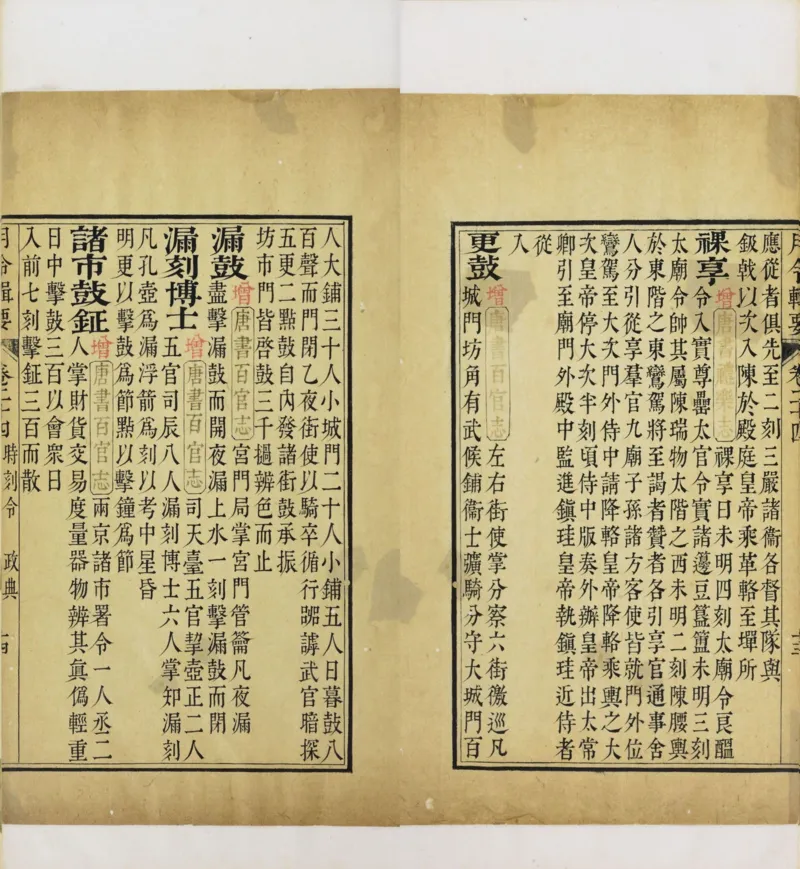 月令輯要 卷二十四 十三
應從者俱先至二刻三嚴諸衞各督其隊與
鈒戟以次入陳於殿庭皇帝乘革輅至墠所
祼享 增 唐書禮樂志 祼享日未明四刻太廟令良醞
令入實尊罍太官令實諸籩豆簋簠未明三刻
太廟令帥其屬陳瑞物太階之西未明二刻陳腰輿
於東階之東鸞駕將至謁者贊者各引享官通事舍
人分引從享羣官九廟子孫諸方客使皆就門外位
鸞駕至大次門外侍中請降輅皇帝降輅乘輿之大
次皇帝停大次半刻頃侍中版奏外辦皇帝出太常
卿引至廟門外殿中監進鎭珪皇帝執鎭珪近侍者
從
入
更鼓 增 唐書百官志 左右街使掌分察六街徼巡凡
城門坊角有武候鋪衞士彍騎分守大城門百
人大鋪三十人小城門二十人小鋪五人日暮鼓八
百聲而門閉乙夜街使以騎卒循行嘂謼武官暗探
五更二點鼓自內發諸街鼓承振
坊市門皆啓鼓三千撾辨色而止
漏鼓 增 唐書百官志 宮門局掌宮門管籥凡夜漏
盡擊漏鼓而開夜漏上水一刻擊漏鼓而閉
漏刻博士 增 唐書百官志 司天臺五官挈壺正二人
五官司辰八人漏刻博士六人掌知漏刻
凡孔壺爲漏浮箭爲刻以考中星昏
明更以擊鼓爲節點以擊鐘爲節
諸市鼓鉦 增 唐書百官志 兩京諸市署令一人丞二
人掌財貨交易度量器物辨其眞僞輕重
日中擊鼓三百以會衆日
入前七刻擊鉦三百而散
月令輯要 卷二十四 時刻令 政典 十四